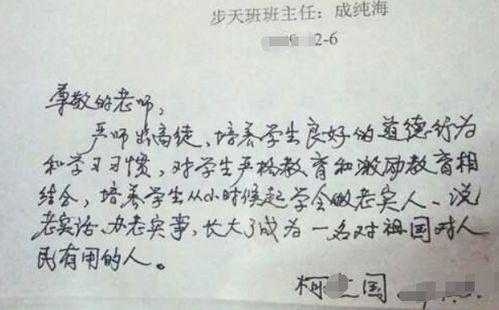 步天班班主任：成纯海
2-6
尊敬的老师，
严师出高徒、培养学生良好的道德行为
和学习习惯，对学生严格教育和激励教育相
结合，培养学生从小时候起学会做老实人、说
老实话、办老实事，长大了成为一名对祖国对人
民有用的人。
柯 国